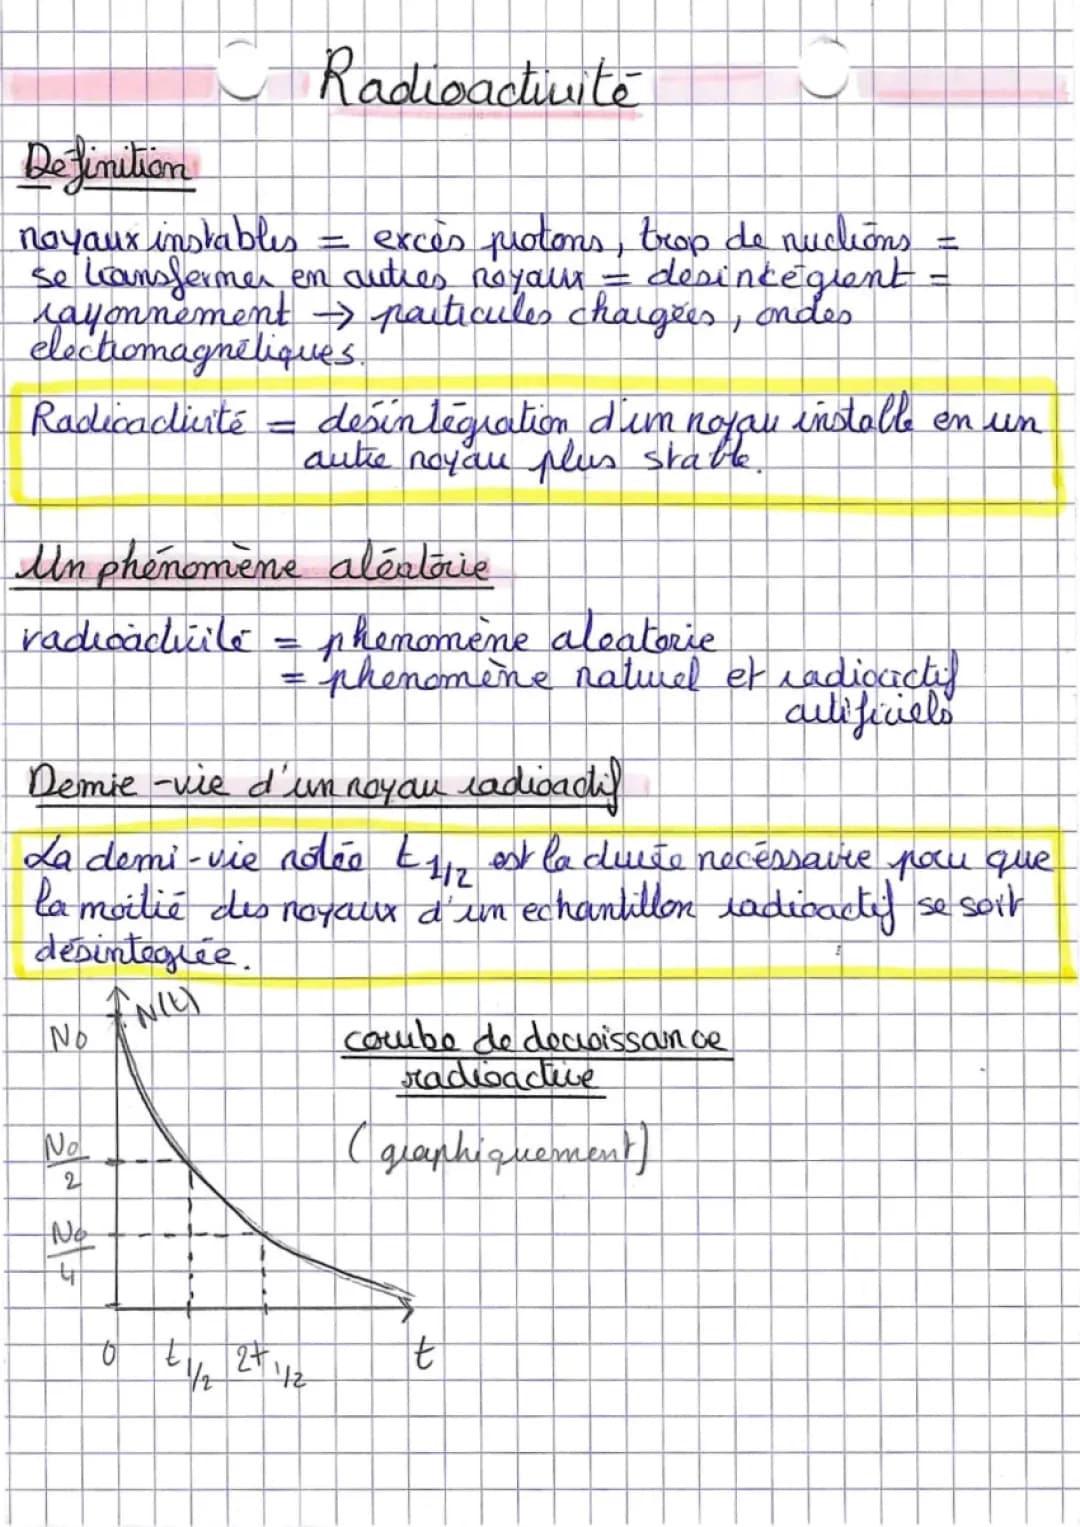 Radioactivité
Definition
noyaux instables = excès protons, trop de nucléons =
se transformer en autres noyaux = desintégrent =
rayonnement → particules chargées, ondes
electromagnétiques.
Radioactivité = desintégration d'un noyau instable en un
autre noyau plus stable.
Un phénomène aléatoire
radioactivité = phenomène aleatorie
= phenomène naturel et radioactif
artificiels
Demie-vie d'un noyau radioactif
La demi-vie notée t1/2 est la durée necéssaire pour que
la moitié des noyaux d'un echantillon radioactif se soit
désintegrée.
N(t)
N0
courbe de decroissance
radioactive
(graphiquement)
N0/2
N0/4
0 t1/2 2t1/2 t